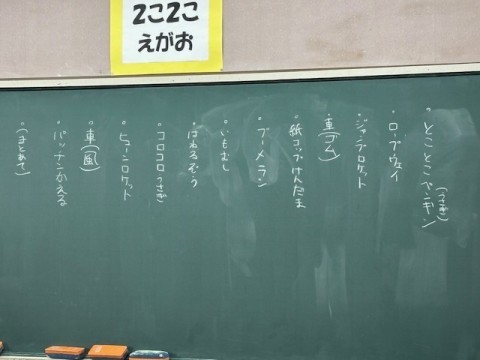 2こ2こ
えがお
・とことこペンギン
(うさぎ)
・ロープウェイ
・ジャンプロケット
・車(ゴム)
・紙コップけんだま
・ブーメラン
・いもむし
・はねるぞう
・コロコロうさぎ
・ヒューンロケット
・車(風)
・パッチンかえる
・(まとあて)